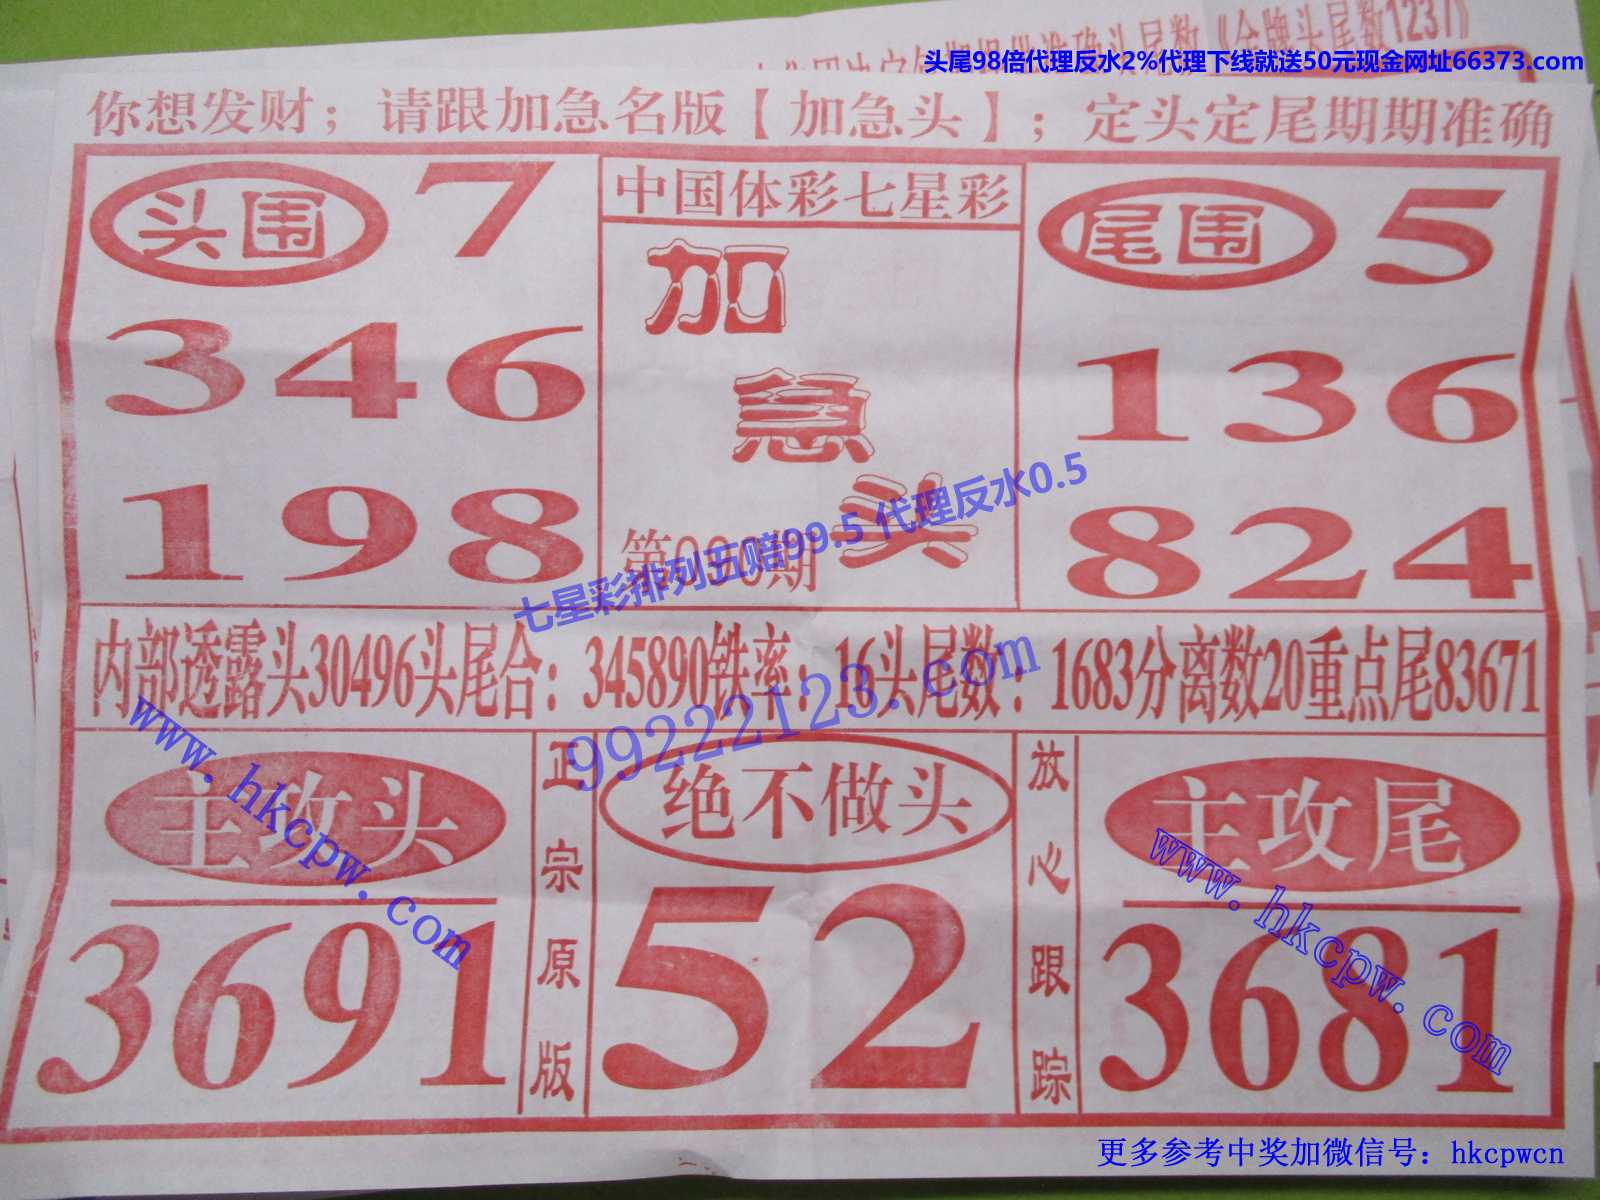 头尾98倍代理反水2%代理下线就送50元现金网址66373.com
你想发财；请跟加急名版【加急头】；定头定尾期期准确
头围 7
346
198
中国体彩七星彩
加
急
头
第090期
尾围 5
136
824
七星彩排列五赔99.5 代理反水0.5
内部透露头30496头尾合：345890铁率：16头尾数：1683分离数20重点尾83671
99222123.com
www.hkcpw.com
主攻头
3691
正宗原版
绝不做头
52
放心跟踪
主攻尾
3681
www.hkcpw.com
更多参考中奖加微信号：hkcpwcn